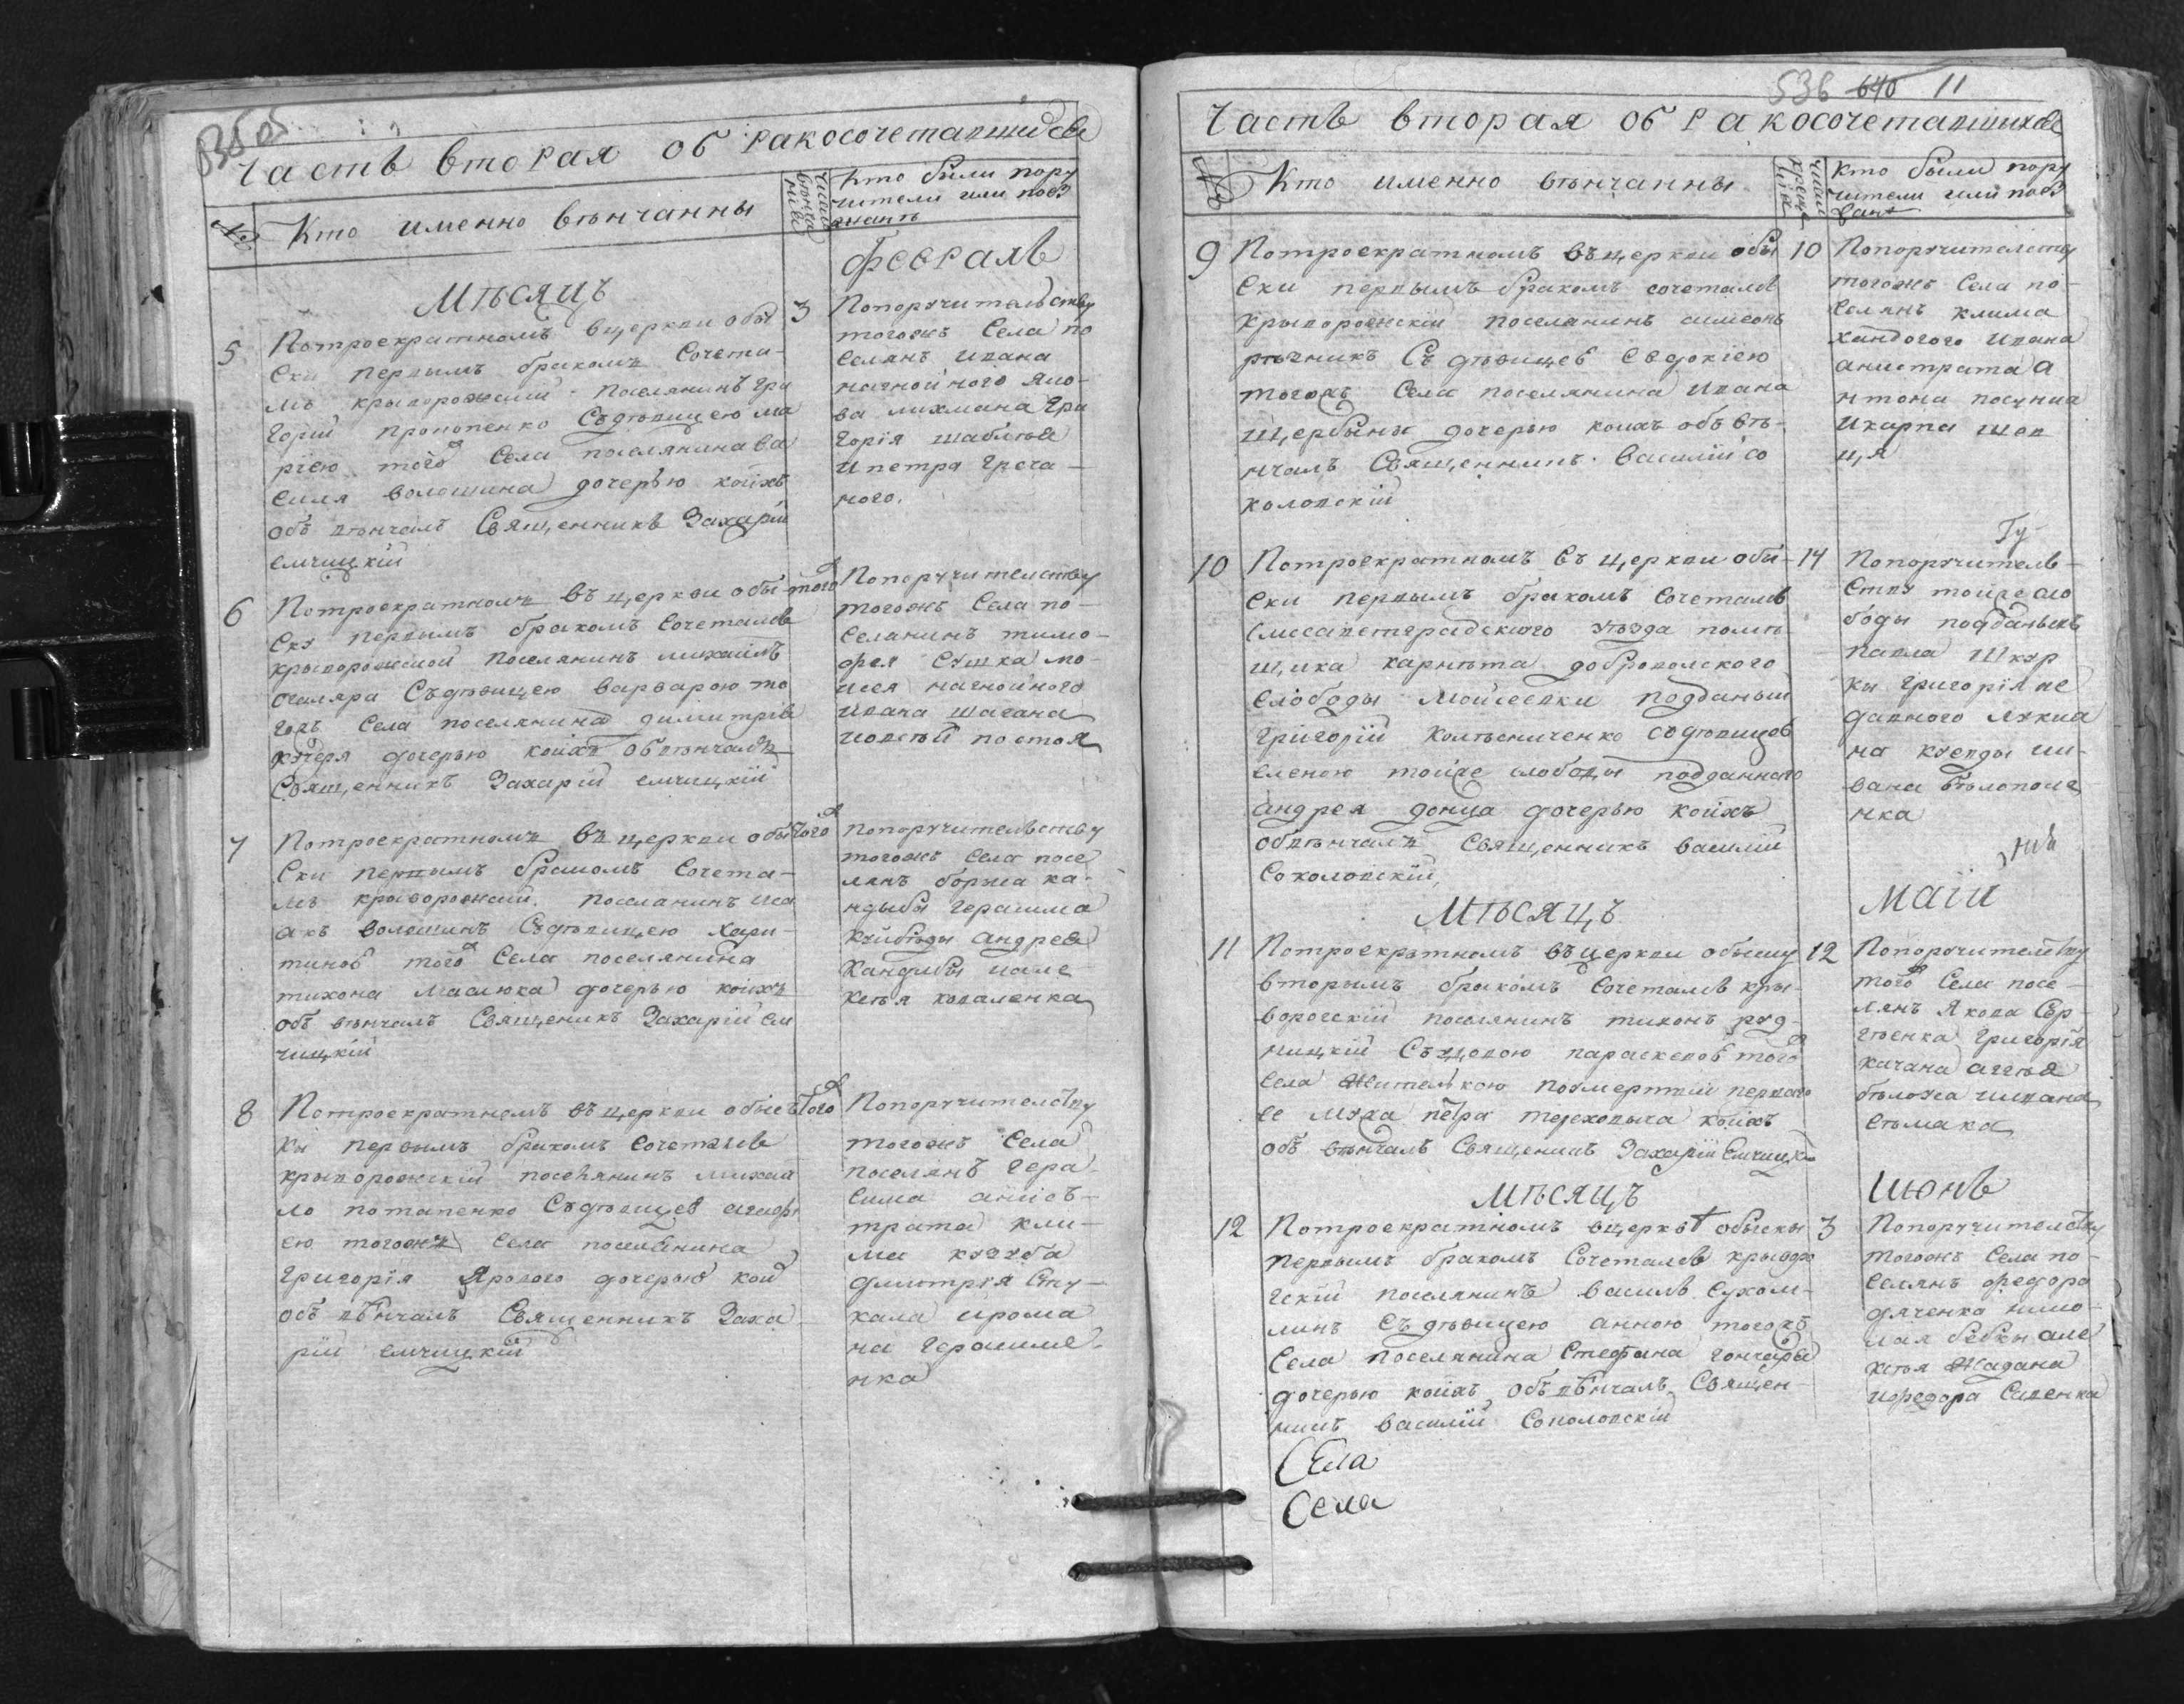 Часть вторая обракосочетавшихся
№ Кто именно вѣнчанны
число вѣнчанія
Кто были пору
чители или поез
жанъ
Мѣсяцъ
Февраль
5 Потроекратномъ вцеркви обы
ски первымъ бракомъ Сочета-
лъ криворожскій поселянинъ Гри
горій прокопенко Съдѣвицею ма
ріею того Села поселянина ва
силя волошина дочерью коихъ
объ вѣнчалъ Священникъ Захарій
емчицкій
3 Попоручительству
тогожъ Села по
селянъ ивана
нагнойного яко-
ва лихмана Гри
горія шаблѣя
ипетра Греча-
ного.
6 Потроекратномъ въ церкви обы
ску первымъ бракомъ Сочетался
криворожской поселянинъ михаилъ
Съдѣвицею варварою то
гожъ Села поселянина димитрія
кучеря дочерью коихъ обвѣнчалъ
Священникъ Захарій емчицкій
того Попоручителству
тогожъ Села по-
Селанинъ тимо-
фея Сушка мо-
исея нагнойного
ивана шагана
постоя
7 Потроекратномъ въ церкви обы
Ски первымъ бракомъ Сочета-
лъ криворожскій поселанинъ иса
акъ волошинъ Съдѣвицею хари-
тиноѣ того Села поселянина
тихона маслюка дочерью коихъ
объ вѣнчалъ Священикъ Захарій ем
чицкій
того попоручительству
тогожъ Села посе
лянъ бориса ка-
ндыбы Герасима
Андрея
Кандыбы иале
ксѣя коваленка
8 Потроекратномъ въ церкви обыс
ки первымъ бракомъ Сочетался
криворожскій поселянинъ михай
ло потапенко Съдѣвицеѣ агафі
ею тогожъ Села поселянина
Григорія Ярового дочерью кои
объ вѣнчалъ Священникъ Заха
рій емчицкій
Того Попоручителству
тогожъ Села
поселянъ Гера-
сима аніс-
трата кли-
ма
Дмитрія Сту-
кала ирома
на Герасиме-
нка
536 640 11
Часть вторая обракосочетавшихся
№ Кто именно вѣнчанны
Кто были пору
чители или поез
жан
9 Потроекратномъ въцеркви обы
Ски первымъ бракомъ сочетался
Криворожскій поселанинъ симеонъ
рѣзникъ Съ дѣвицеѣ Евдокіею
тогожъ Села поселянина ивана
щербины дочерью коихъ объ вѣ-
нчалъ Священникъ Василій Со
коловскій
10 Попоручителству
тогожъ Села по-
Селянъ клима
хандогого ивана
анистрата а
нтона
икарпа шев
ця
10 Потроекратномъ въ церкви обы-
ски первымъ бракомъ Сочетался
Елисаветградского уѣзда помѣ-
щика карнѣта добровольского
Слободы Мойсеевки подданый
Григорій Колѣсниченко Сдѣвицеѣ
еленою тойже слободы подданного
Андрея донца дочерью коихъ
обвѣнчалъ Священникъ василій
Соколовскій
14 Попоручитель-
Ству тойже сло
боды подданыхъ
павла Шкур
ки Григорія не
давного лукиа
на ии-
вана бѣлополе
нка
Мѣсяцъ
маіи
11 Потроекратномъ въцеркви обыску
вторымъ бракомъ Сочетался кри-
ворогскій поселянинъ тихонъ руд-
ницкій Съвдовою параскевоѣ того
Села жителькою посмертіи первого
ее мужа петра терехов коихъ
объ вѣнчалъ Священикъ Захарій Емчицкі
12 Попоручителству
того Села посе-
лянъ якова Сер-
гѣенка Григорія
качана
бѣлоуса иивана
Мѣсяцъ
июнь
12 Потроекратномъ вцеркви обыски
первымъ бракомъ Сочетался криворо
гскій поселянинъ василь Сухом-
линъ Съ дѣвицею анною тогожъ
Села поселянина Стефана гончара
дочерью коихъ объ вѣнчалъ Священ-
никъ василій Соколовскій
3 Попоручителству
тогожъ Села по-
Селянъ федора
дяченка нико-
лая бабки але
ксѣя Жадана
ифедора Савенка
Села
Села